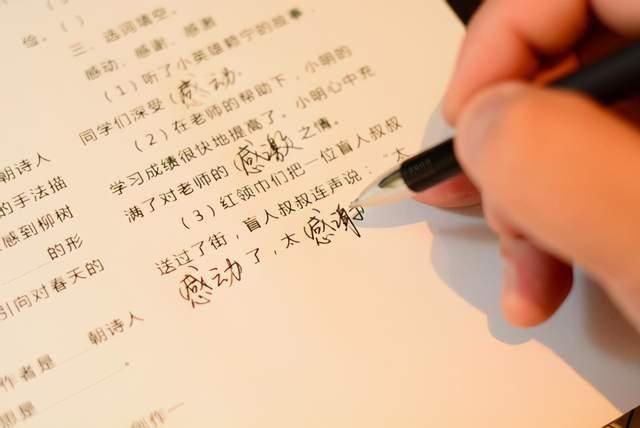 俭。( )
三、选词填空。
感动、感谢、感激
(1)听了小英雄赖宁的故事，
同学们深受(感动。
(2)在老师的帮助下，小明的
学习成绩很快地提高了。小明心中充
满了对老师的 感激 之情。
(3)红领巾们把一位盲人叔叔
送过了街，盲人叔叔连声说：“太
感动了，太感谢
朝诗人
的手法描
感到柳树
的形
引向对春天的
作者是 朝诗人
思是
创作一